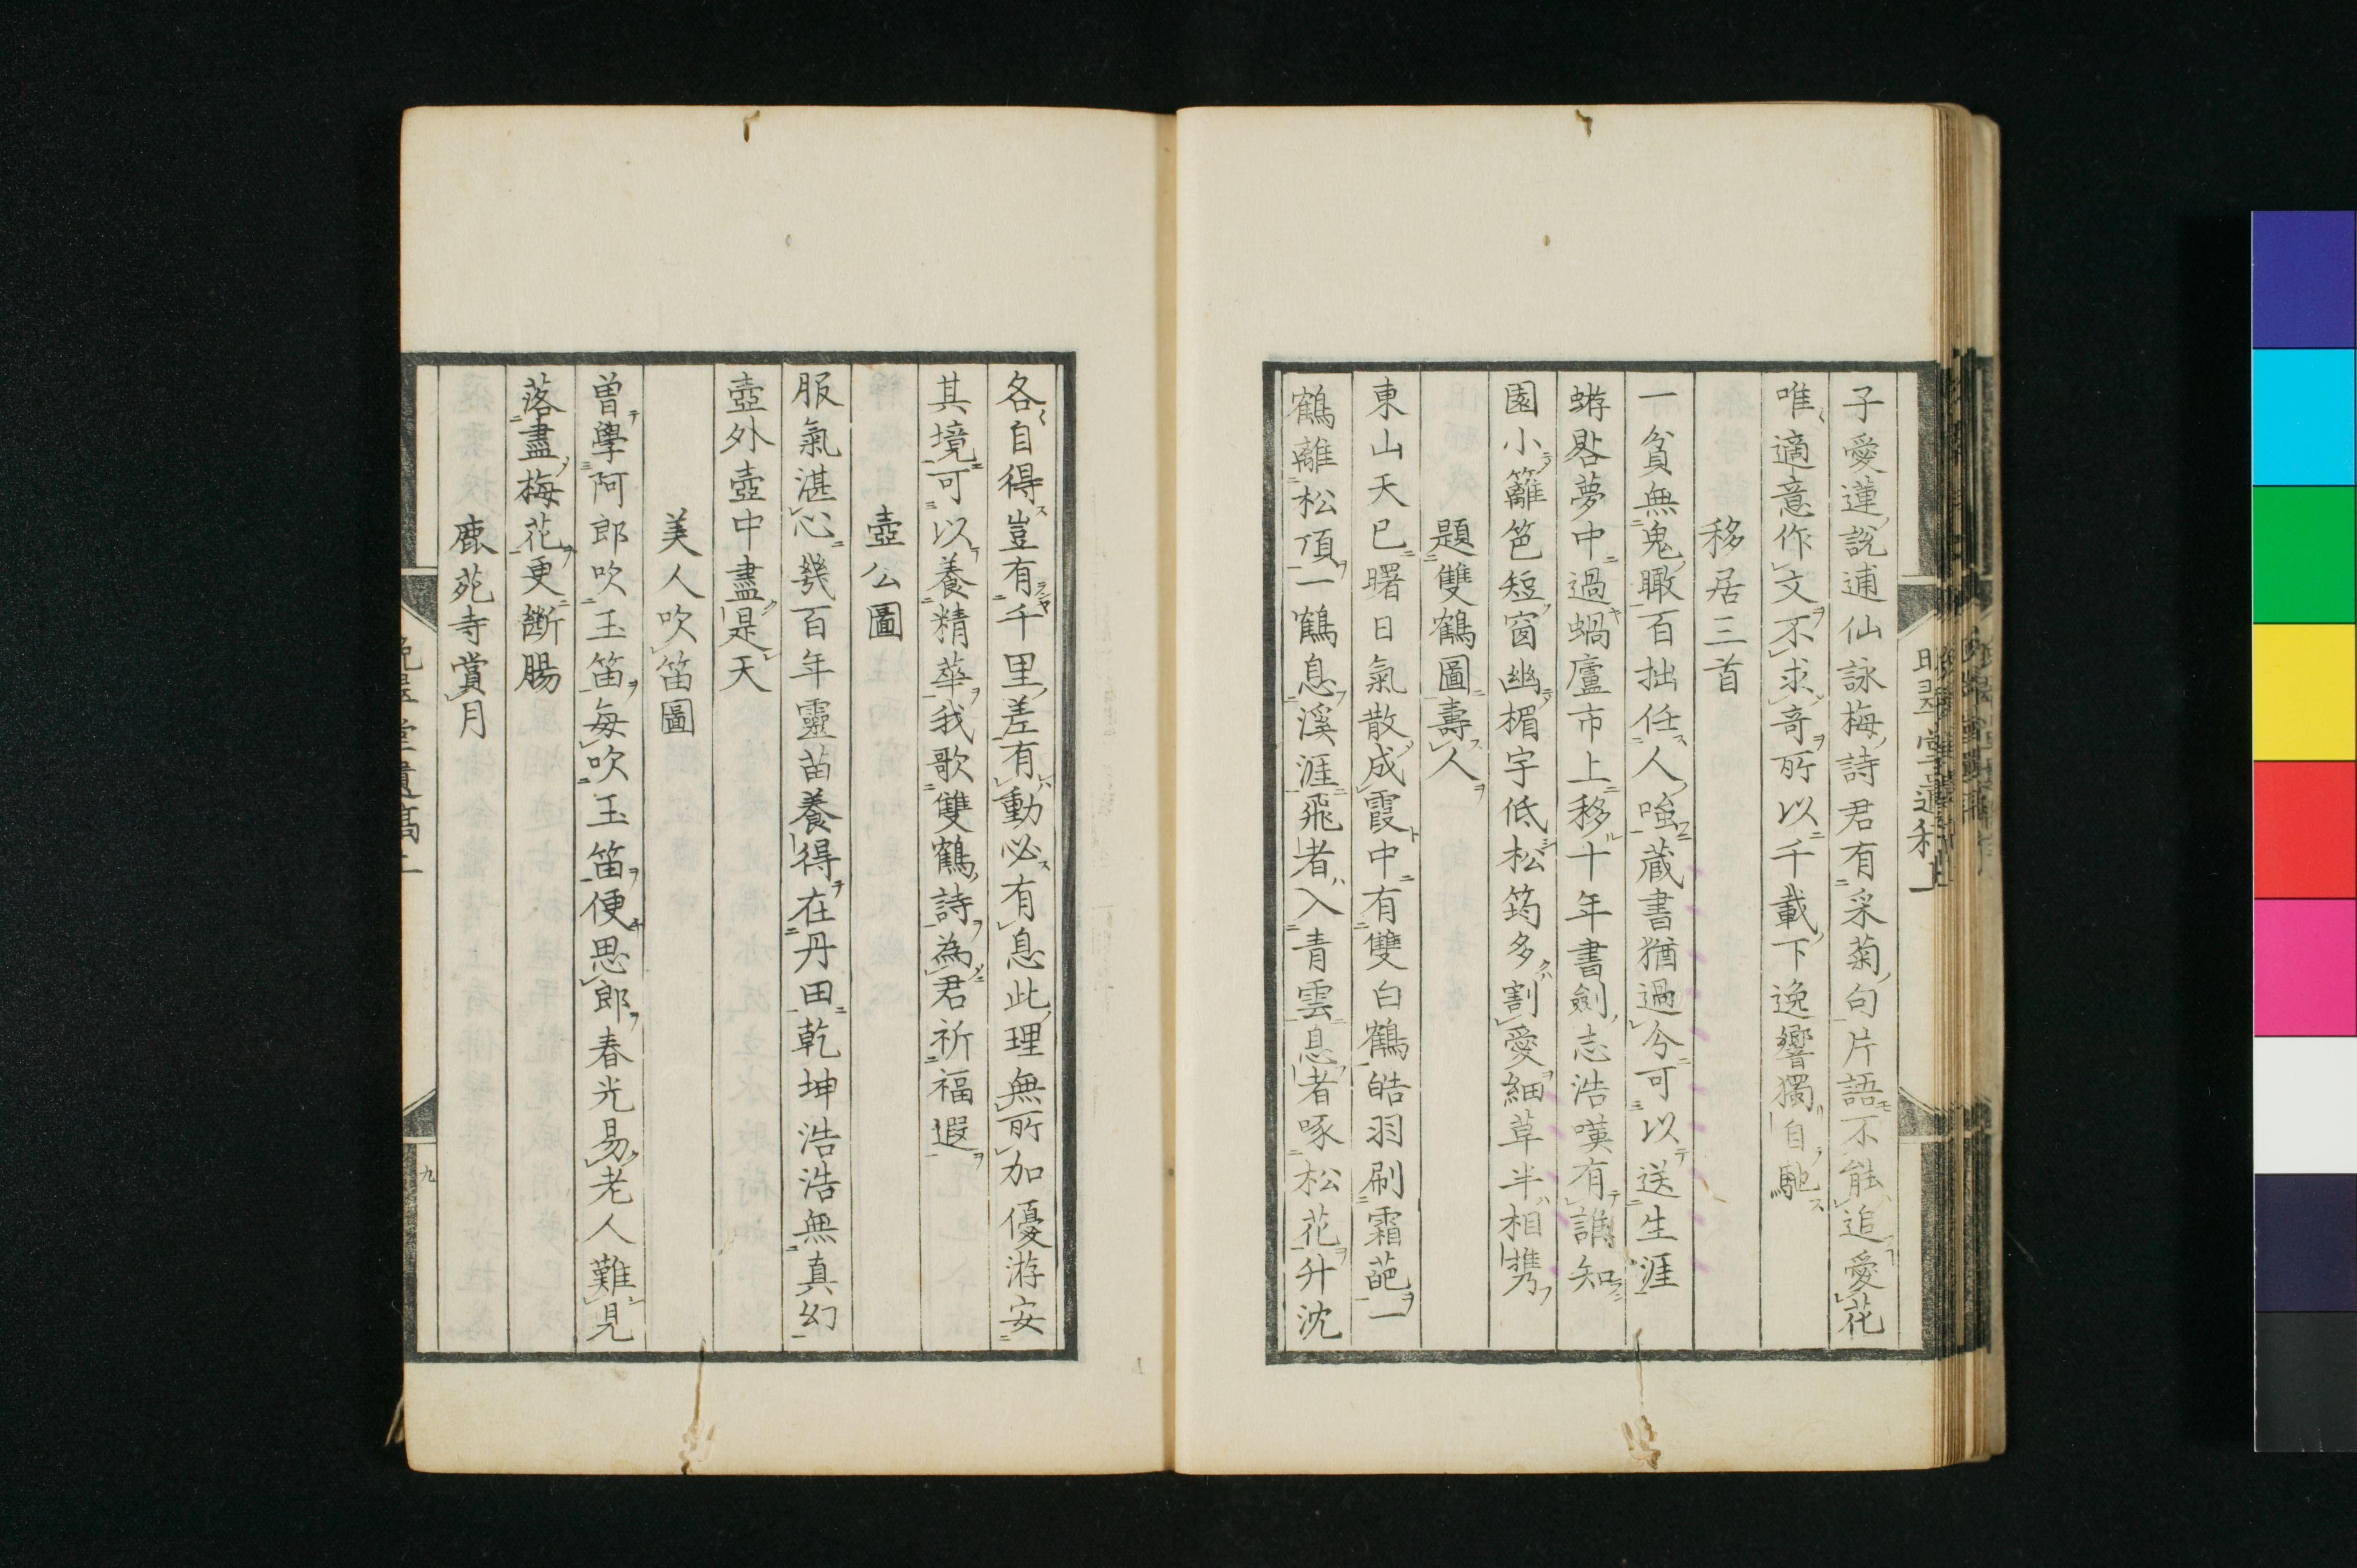 子愛蓮說逋仙詠梅詩君有采菊句片語不能追愛花
唯適意作文不求奇所以千載下逸響獨自馳
移居三首
一貧無鬼瞰百拙任人嗤蔵書猶過今可以送生涯
蝣畧夢中過蝸廬市上移十年書劍志浩嘆有誰知
園小籬笆短窗幽楣宇低松筠多割愛細草半相携
題雙鶴圖壽人
東山天已曙日氣散成霞中有雙白鶴皓羽刷霜葩一
鶴離松頂一鶴息溪涯飛者入青雲息者啄松花升沈
各自得豈有千里差有動必有息此理無所加優游安
其境可以養精華我歌雙鶴詩為君祈福遐
壺公圖
服氣湛心幾百年靈苗養得在丹田乾坤浩浩無真幻
壺外壺中盡是天
美人吹笛圖
曽學阿郎吹玉笛每吹玉笛便思郎春光易老人難見
落盡梅花更斷腸
鹿苑寺賞月
九